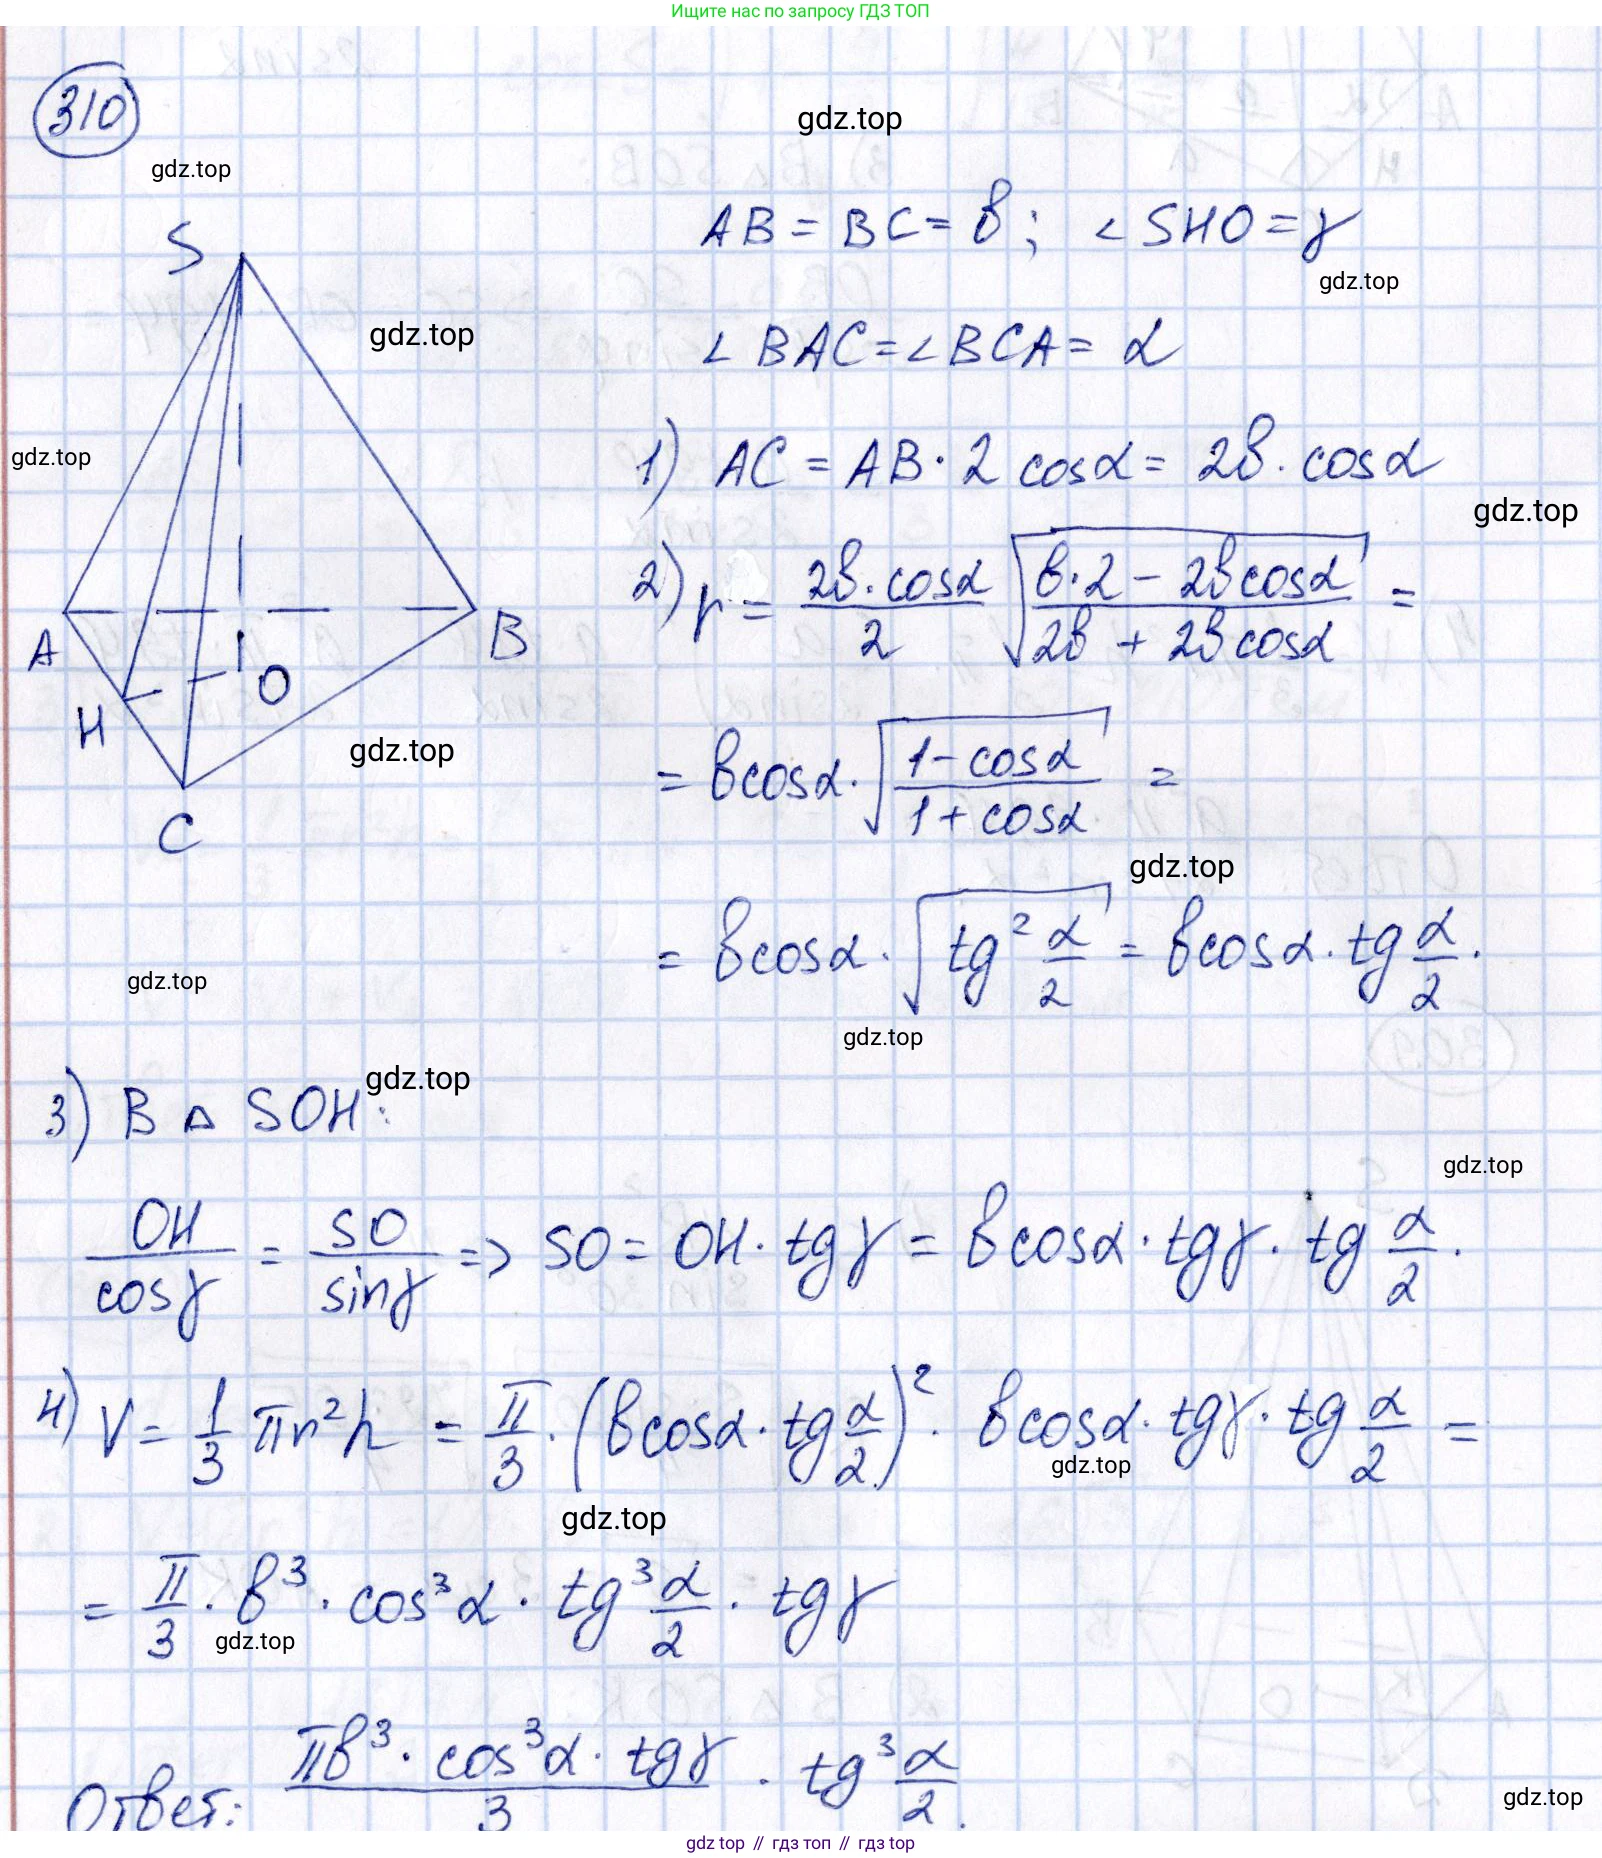 Ищите нас по запросу ГДЗ ТОП
310
gdz.top
gdz.top
AB = BC = в; ∠SHO = γ
gdz.top
S
gdz.top
∠BAC = ∠BCA = α
gdz.top
1) AC = AB · 2 cosα = 2в · cosα
gdz.top
2) r = 2в · cosα / 2 √((в·2 − 2в cosα) / (2в + 2в cosα)) =
A
B
O
H
gdz.top
= в cosα · √((1 − cosα) / (1 + cosα)) =
C
gdz.top
= в cosα · √(tg² α/2) = в cosα · tg α/2.
gdz.top
gdz.top
gdz.top
3) В △ SOH:
gdz.top
OH / cosγ = SO / sinγ => SO = OH · tgγ = в cosα · tgγ · tg α/2.
4) V = 1/3 πr²h = π/3 · (в cosα · tg α/2)² · в cosα · tgγ · tg α/2 =
gdz.top
gdz.top
= π/3 · в³ · cos³α · tg³ α/2 · tgγ
gdz.top
Ответ: πв³ · cos³α · tgγ / 3 · tg³ α/2.
gdz.top
gdz top // гдз топ // гдз top